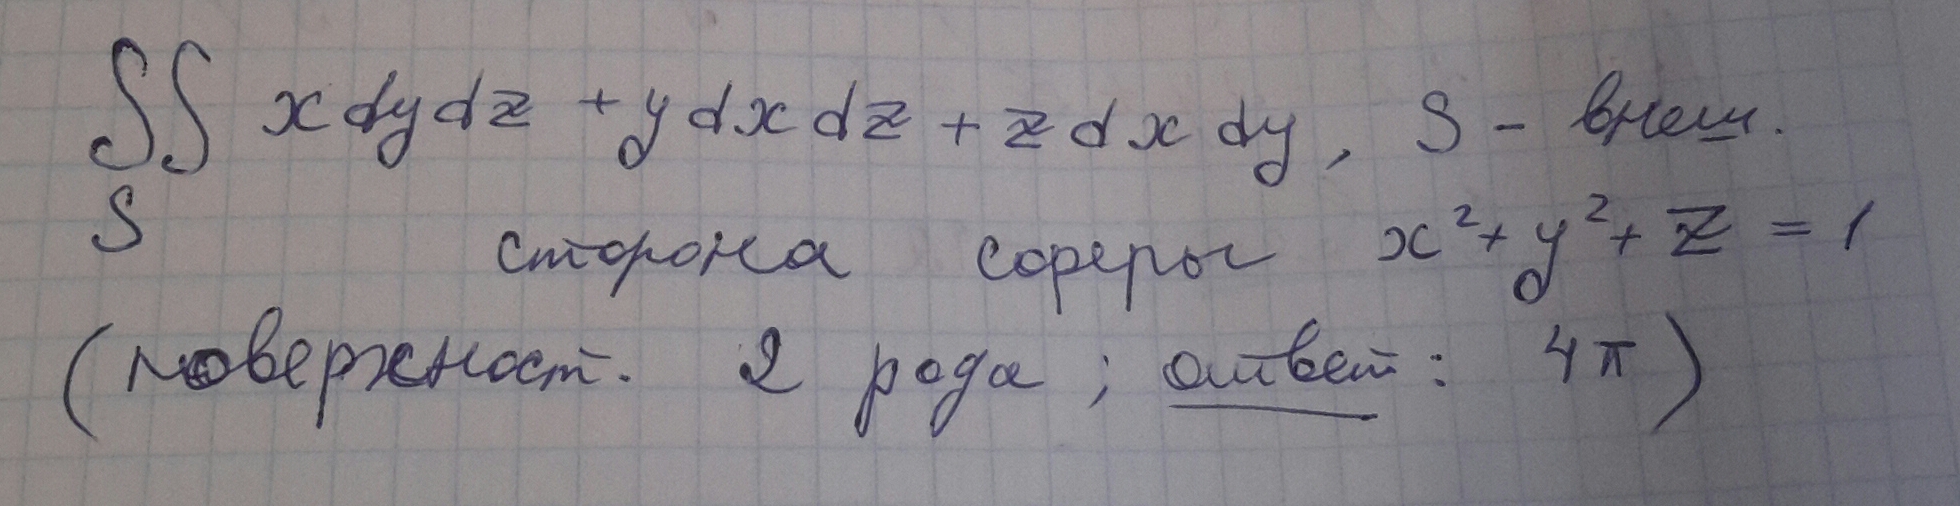 ∬ x dy dz + y dx dz + z dx dy, S - внеш.
S
сторона сферы x² + y² + z = 1
(поверхност. 2 рода; ответ: 4π)